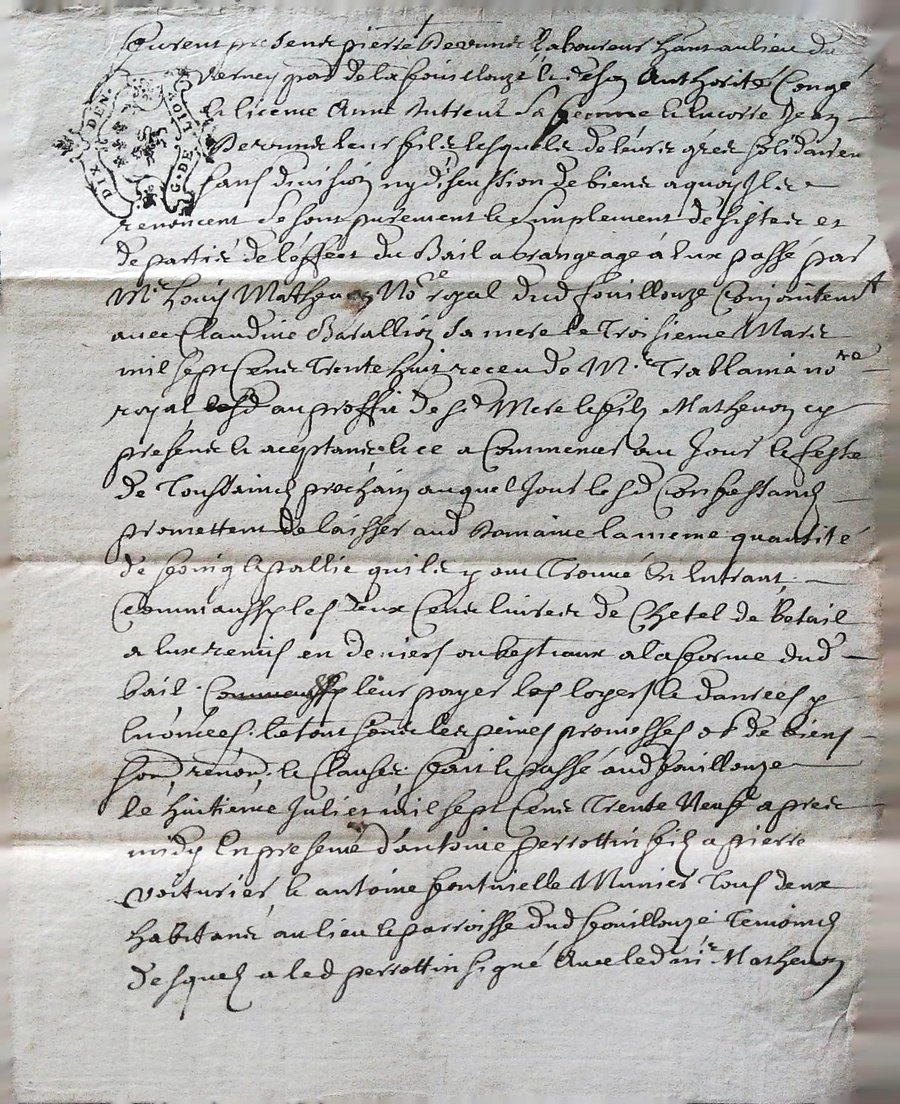 furent presents pierre laboureur hant au lieu du
verney parr de la fouillouze le de son authorité Congé
& licence Anne sa femme & encorre Jean
leur fils lesquels de leurs grés solidairem
sans division ny discussion de biens a quoy Ils
renoncent se sont purement & simplement desistes et
departis de l'effect du Bail a grangeage a eux passé par
Mr Louis Mathevon Nore royal dud fouillouze Conjointemt
avec Claudine Barallion sa mere le Troisieme Mars
mil sept Cents Trente huit receu de Mr Trablaine nore
royal au proffit de sd Mere & fils Mathevon cy
presents & aceptants & ce a Commencer au Jour & feste
de Toussaincts prochain auquel Jour lesd Confessants
promettent de laisser aud Domaine la meme quantité
de foing & pallie qu'ils y ont Trouvé En Entrant
Comm'aussy les deux Cents livres de Chetel de betail
a eux remis en deniers ou bestiaux a la forme dud
bail. Comme aussy leur payer les loyers & danrées y
Enoncées. le tout sous les peines promesses ob de biens
soum renon. & Clauses fait & passé aud fouillouze
le huitieme Juliet mil sept Cents Trente Neuf apres
midy En presence d'antoine perrottin fils a pierre
voiturier & antoine Munier Tous deux
habitans au lieu & parroisse dud fouillouze Temoincts
desquels a led perrottin signé Avec led mr Mathevon
DIX DEN.
G. DE